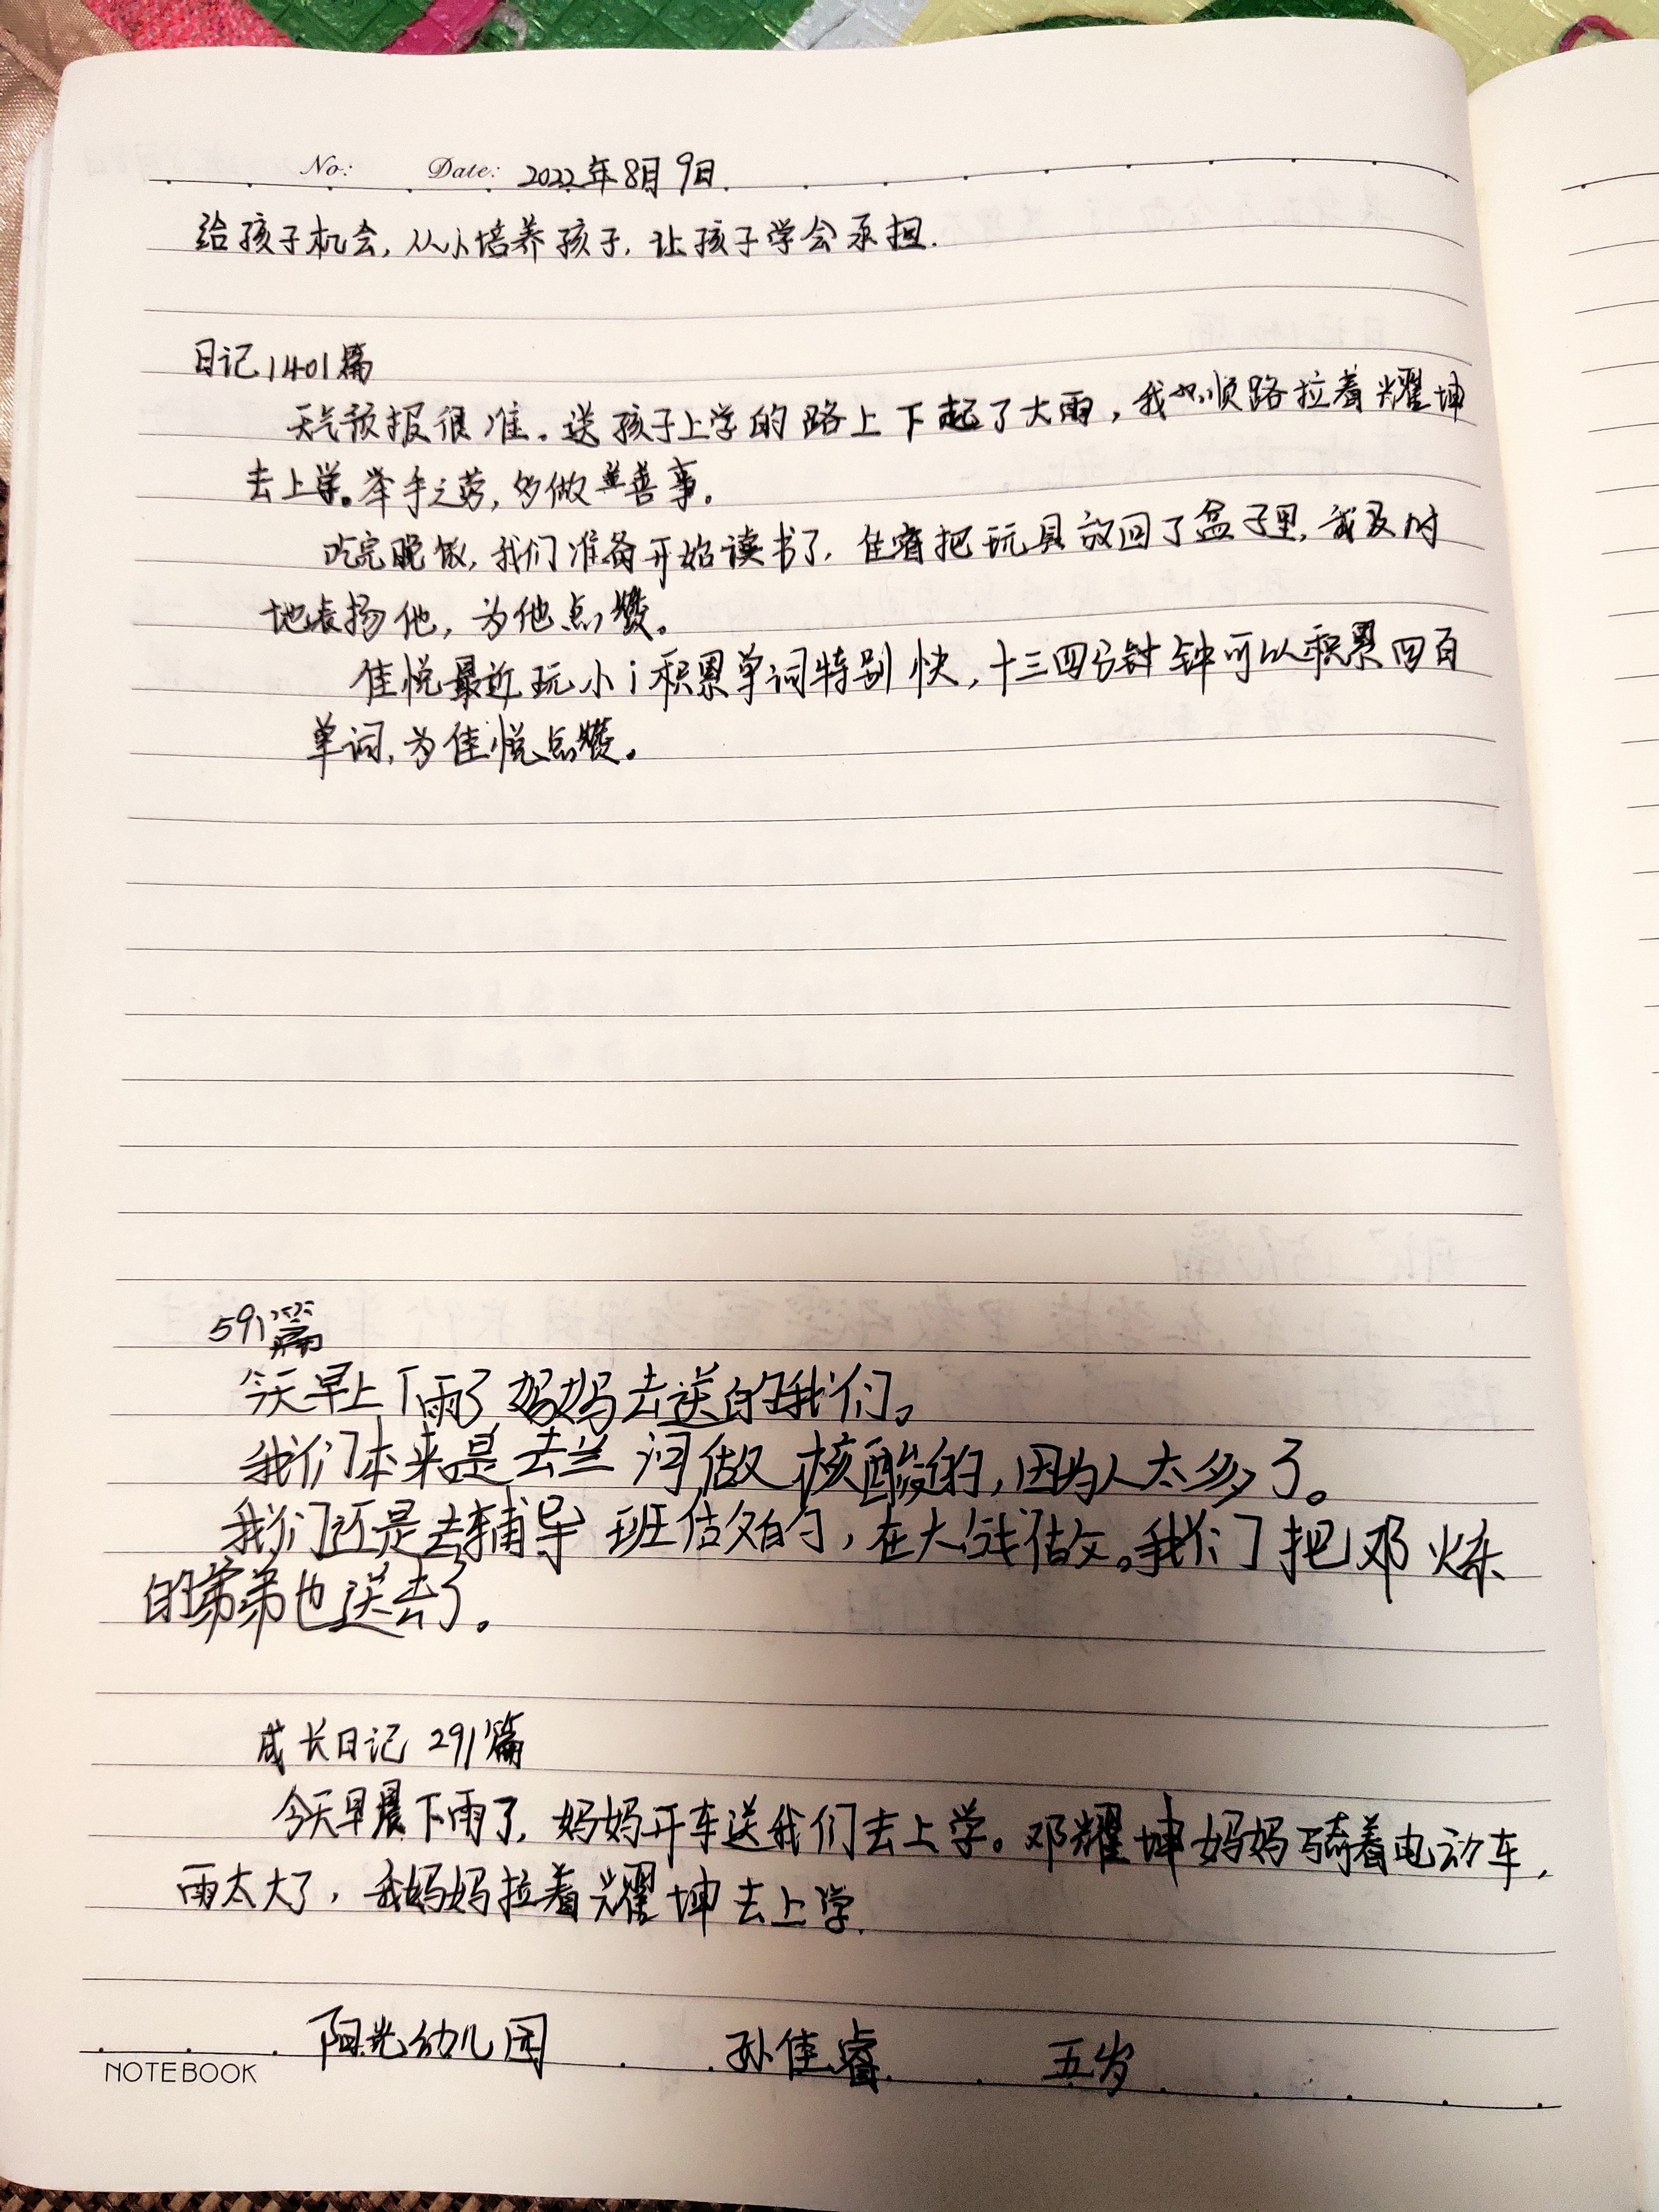 No: Date: 2022年8月9日.
给孩子机会,从小培养孩子,让孩子学会承担.
日记1401篇
天气预报很准。送孩子上学的路上下起了大雨,我也顺路拉着耀坤
去上学。举手之劳,多做善事。
吃完晚饭,我们准备开始读书了,佳睿把玩具放回了盒子里,我及时
地表扬他,为他点赞。
佳悦最近玩小i积累单词特别快,十三四分钟可以积累四百
单词,为佳悦点赞。
591篇
今天早上下雨了妈妈去送的我们。
我们本来是去兰河做核酸的,因为人太多了。
我们还是去辅导班做的,在大线做。我们把邓炼
的弟弟也送去了。
成长日记 291篇
今天早晨下雨了,妈妈开车送我们去上学。邓耀坤妈妈骑着电动车,
雨太大了,我妈妈拉着耀坤去上学.
阳光幼儿园 孙佳睿 五岁
NOTEBOOK